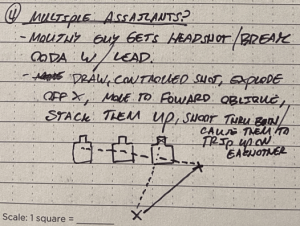 ④ MULTIPLE ASSAILANTS?
- MOUTHY GUY GETS HEADSHOT/BREAK
OODA W/ LEAD.
- DRAW, CONTROLLED SHOT, EXPLODE
OFF X, MOVE TO FOWARD OBLIQUE,
STACK THEM UP, SHOOT THRU BOTH/
CAUSE THEM TO
TRIP UP ON
EACHOTHER
Scale: 1 square = ________